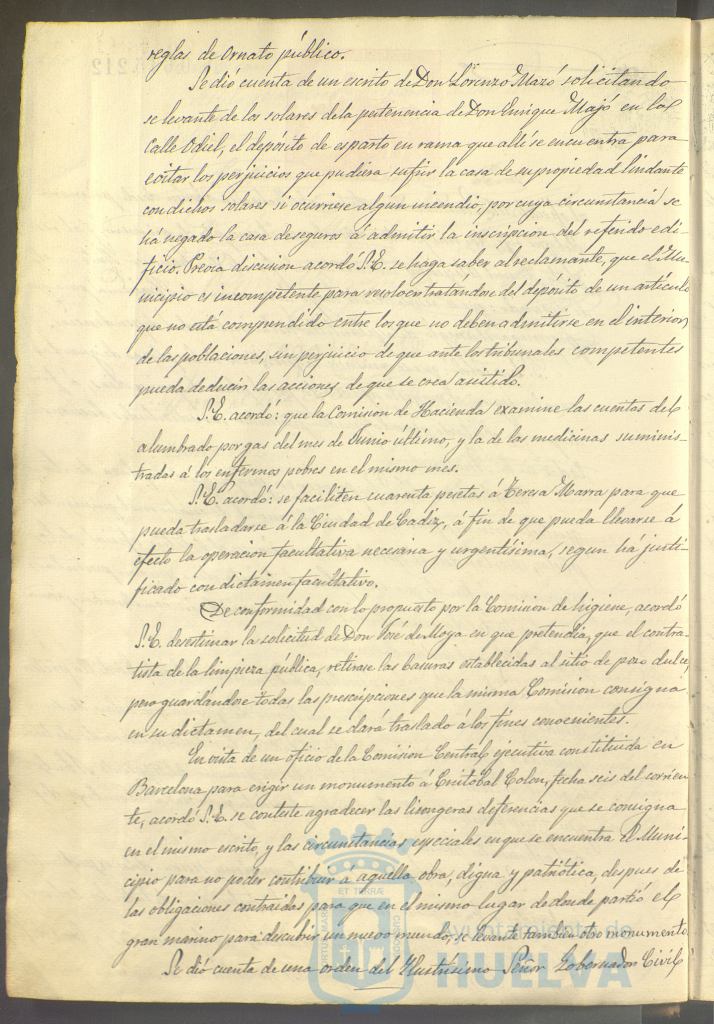 reglas de ornato público.
Se dió cuenta de un escrito de Don Lorenzo Mazó solicitando
se levante de los solares de la pertenencia de Don Enrique Majó en la
Calle Odiel, el depósito de esparto en rama que allí se encuentra para
evitar los perjuicios que pudiera sufrir la casa de su propiedad lindante
con dichos solares si ocurriese algun incendio, por cuya circunstancia se
há negado la casa de seguros á admitir la inscripcion del referido edi-
ficio. Prévia discusion acordó S.E. se haga saber al reclamante, que el Mu-
nicipio es incompetente para resolver tratándose del depósito de un artículo
que no está comprendido entre los que no deben admitirse en el interior
de las poblaciones, sin perjuicio de que ante los tribunales competentes
pueda deducir las acciones de que se crea asistido.
S.E. acordó: que la Comision de Hacienda examine las cuentas del
alumbrado por gas del mes de Junio último, y la de las medicinas suminis-
tradas á los enfermos pobres en el mismo mes.
S.E. acordó: se faciliten cuarenta pesetas á Teresa Marra para que
pueda trasladarse á la Ciudad de Cadiz, á fin de que pueda llevarse á
efecto la operacion facultativa necesaria y urgentísima, segun há justi-
ficado con dictámen facultativo.
De conformidad con lo propuesto por la Comision de higiene, acordó
S.E. desestimar la solicitud de Don José de Moya en que pretendia, que el contra-
tista de la limpieza pública, retirase las basuras establecidas al sitio de pozo dulce,
pero guardándose todas las prescripciones que la misma Comision consigna
en su dictamen, del cual se dará traslado á los fines convenientes.
En vista de un oficio de la Comision Central ejecutiva constituida en
Barcelona para erigir un monumento á Cristobal Colon, fecha seis del corrien-
te, acordó S.E. se conteste agradecer las lisongeras deferencias que se consigna
en el mismo escrito, y las circunstancias especiales en que se encuentra el Muni-
cipio para no poder contribuir á aquella obra, digna y patriótica, despues de
las obligaciones contraidas para que en el mismo lugar de donde partió el
gran marino para descubrir un nuevo mundo, se levante tambien otro monumento.
Se dió cuenta de una orden del Ilustrísimo Señor Gobernador Civil
Ayuntamiento de
HUELVA